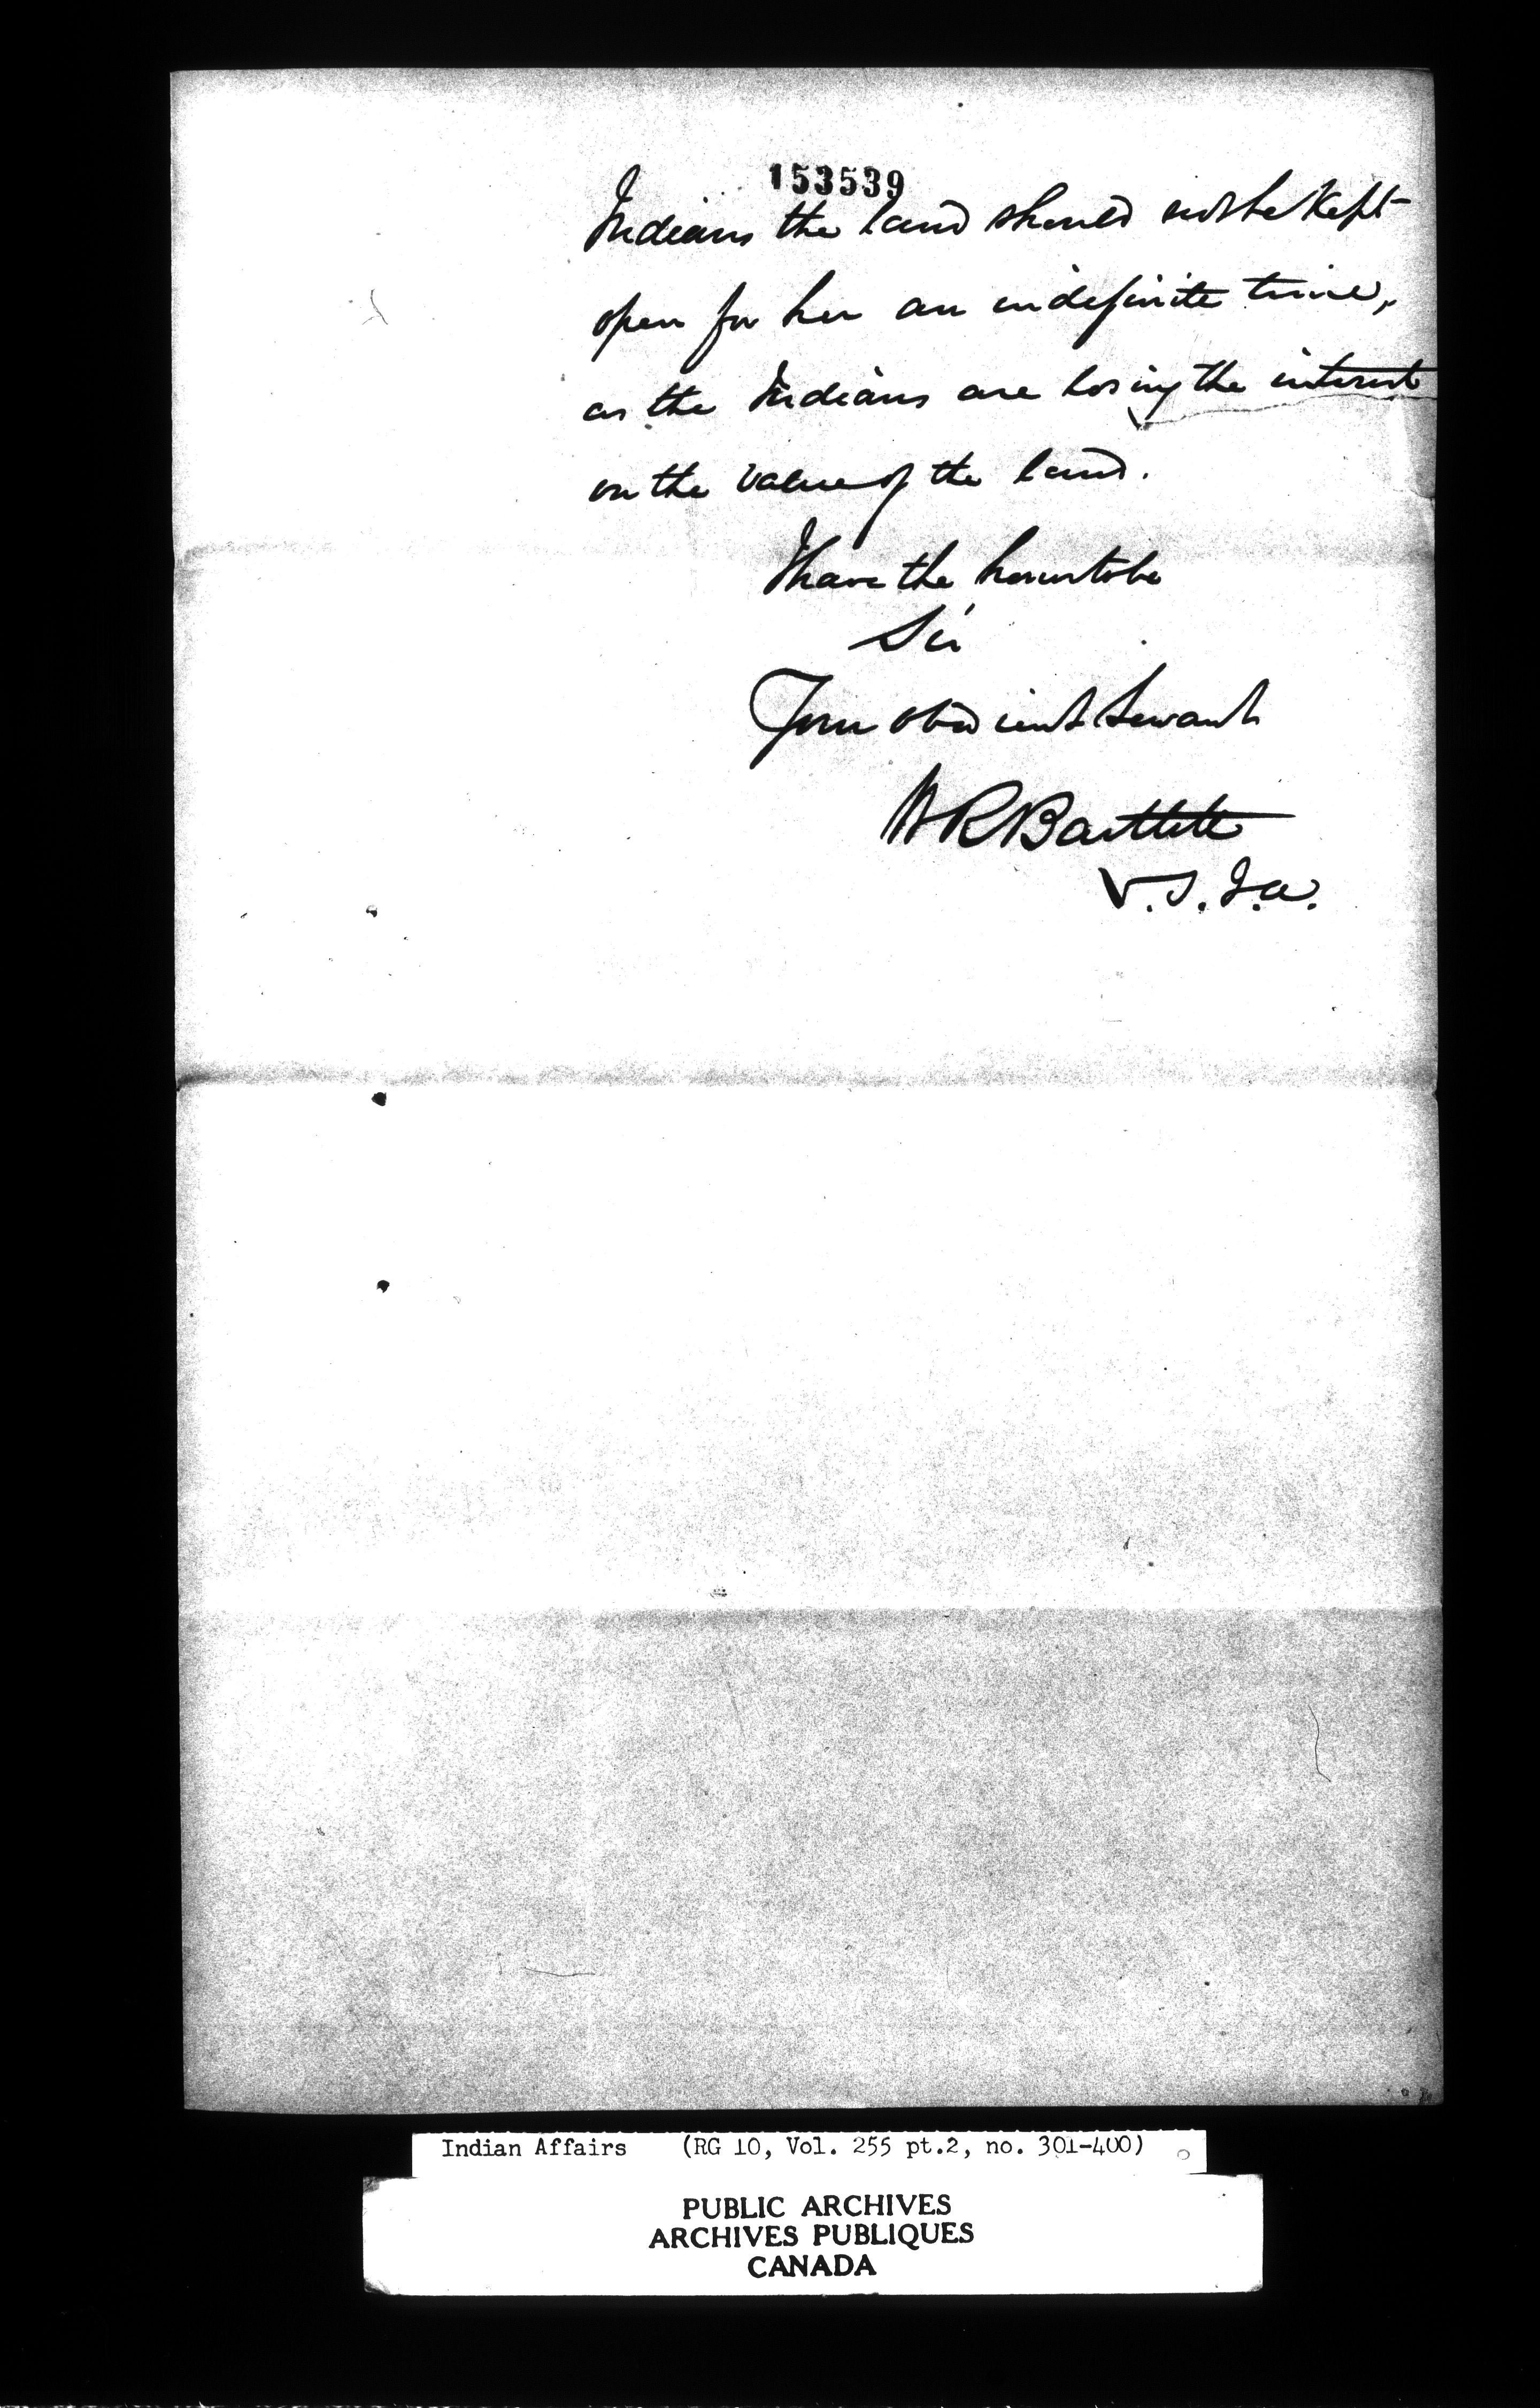 153539
Indians the land should not be kept
open for her an indefinite time,
as the Indians are losing the interest
on the value of the land.
I have the honor to be
Sir
Your obedient Servant
W R Bartlett
V.S.I.a.
Indian Affairs (RG 10, Vol. 255 pt.2, no. 301-400)
PUBLIC ARCHIVES
ARCHIVES PUBLIQUES
CANADA